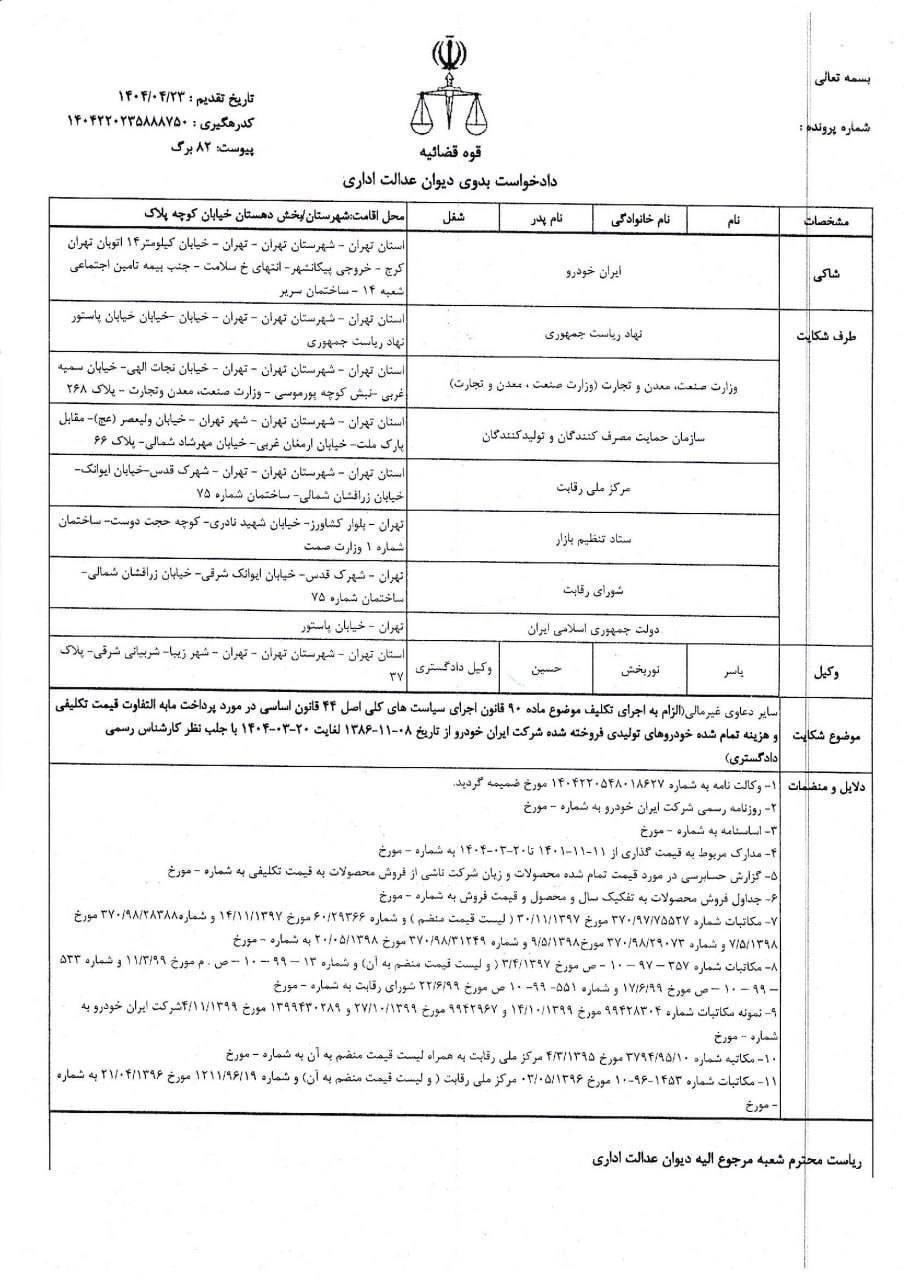 بسمه تعالی
شماره پرونده :
تاریخ تقدیم : ۱۴۰۴/۰۴/۲۳
کدرهگیری : ۱۴۰۴۲۲۰۲۳۵۸۸۸۷۵۰
پیوست: ۸۲ برگ
قوه قضائیه
دادخواست بدوی دیوان عدالت اداری
مشخصات نام نام خانوادگی نام پدر شغل محل اقامت:شهرستان/بخش دهستان خیابان کوچه پلاک
شاکی
ایران خودرو
استان تهران - شهرستان تهران - تهران - خیابان کیلومتر۱۴ اتوبان تهران
کرج - خروجی پیکانشهر- انتهای خ سلامت - جنب بیمه تامین اجتماعی
شعبه ۱۴ - ساختمان سریر
طرف شکایت
نهاد ریاست جمهوری
استان تهران - شهرستان تهران - تهران - خیابان -خیابان خیابان پاستور
نهاد ریاست جمهوری
وزارت صنعت، معدن و تجارت (وزارت صنعت ، معدن و تجارت)
استان تهران - شهرستان تهران - تهران - خیابان نجات الهی- خیابان سمیه
غربی -نبش کوچه پورموسی - وزارت صنعت، معدن وتجارت - پلاک ۲۶۸
سازمان حمایت مصرف کنندگان و تولیدکنندگان
استان تهران - شهرستان تهران - شهر تهران - خیابان ولیعصر (عج)- مقابل
پارک ملت- خیابان ارمغان غربی- خیابان مهرشاد شمالی- پلاک ۶۶
مرکز ملی رقابت
استان تهران - شهرستان تهران - تهران - شهرک قدس-خیابان ایوانک-
خیابان زرافشان شمالی- ساختمان شماره ۷۵
ستاد تنظیم بازار
تهران - بلوار کشاورز- خیابان شهید نادری- کوچه حجت دوست- ساختمان
شماره ۱ وزارت صمت
شورای رقابت
تهران - شهرک قدس- خیابان ایوانک شرقی- خیابان زرافشان شمالی-
ساختمان شماره ۷۵
دولت جمهوری اسلامی ایران
تهران - خیابان پاستور
وکیل یاسر نوربخش حسین وکیل دادگستری
استان تهران - شهرستان تهران - تهران - شهر زیبا- شربیانی شرقی- پلاک
۳۷
موضوع شکایت
سایر دعاوی غیرمالی(الزام به اجرای تکلیف موضوع ماده ۹۰ قانون اجرای سیاست های کلی اصل ۴۴ قانون اساسی در مورد پرداخت مابه التفاوت قیمت تکلیفی
و هزینه تمام شده خودروهای تولیدی فروخته شده شرکت ایران خودرو از تاریخ ۰۸-۱۱-۱۳۸۶ لغایت ۲۰-۰۳-۱۴۰۴ با جلب نظر کارشناس رسمی
دادگستری)
دلایل و منضمات
۱- وکالت نامه به شماره ۱۴۰۴۲۲۰۵۴۸۰۱۸۶۲۷ مورخ ضمیمه گردید.
۲- روزنامه رسمی شرکت ایران خودرو به شماره - مورخ
۳- اساسنامه به شماره - مورخ
۴- مدارک مربوط به قیمت گذاری از ۱۱-۱۱-۱۴۰۱ تا۲۰-۰۳-۱۴۰۴ به شماره - مورخ
۵- گزارش حسابرسی در مورد قیمت تمام شده محصولات و زیان شرکت ناشی از فروش محصولات به قیمت تکلیفی به شماره - مورخ
۶- جداول فروش محصولات به تفکیک سال و محصول و قیمت فروش به شماره - مورخ
۷- مکاتبات شماره ۳۷۰/۹۷/۷۵۵۲۷ مورخ ۳۰/۱۱/۱۳۹۷ ( لیست قیمت منضم ) و شماره ۶۰/۲۹۳۶۶ مورخ ۱۴/۱۱/۱۳۹۷ و شماره۳۷۰/۹۸/۲۸۳۸۸ مورخ
۷/۵/۱۳۹۸ و شماره ۳۷۰/۹۸/۲۹۰۷۳ مورخ۹/۵/۱۳۹۸ و شماره ۳۷۰/۹۸/۳۱۲۴۹ مورخ ۲۰/۰۵/۱۳۹۸ به شماره - مورخ
۸- مکاتبات شماره ۳۵۷ - ۹۷ - ۱۰ - ص مورخ ۳/۴/۱۳۹۷ ( و لیست قیمت منضم به آن) و شماره ۱۳ - ۹۹ - ۱۰ - ص . م مورخ ۱۱/۳/۹۹ و شماره ۵۳۳
- ۹۹ - ۱۰ - ص مورخ ۱۷/۶/۹۹ و شماره ۵۵۱- ۹۹- ۱۰ ص مورخ ۲۲/۶/۹۹ شورای رقابت به شماره - مورخ
۹- نمونه مکاتبات شماره ۹۹۴۲۸۳۰۴ مورخ ۱۴/۱۰/۱۳۹۹ و ۹۹۴۲۹۶۷ مورخ ۲۷/۱۰/۱۳۹۹ و ۱۳۹۹۴۳۰۲۸۹ مورخ ۴/۱۱/۱۳۹۹شرکت ایران خودرو به
شماره - مورخ
۱۰- مکاتبه شماره ۳۷۹۴/۹۵/۱۰ مورخ ۴/۳/۱۳۹۵ مرکز ملی رقابت به همراه لیست قیمت منضم به آن به شماره - مورخ
۱۱- مکاتبات شماره ۱۴۵۳-۹۶-۱۰ مورخ ۰۳/۰۵/۱۳۹۶ مرکز ملی رقابت ( و لیست قیمت منضم به آن) و شماره ۱۲۱۱/۹۶/۱۹ مورخ ۲۱/۰۴/۱۳۹۶ به شماره
- مورخ
ریاست محترم شعبه مرجوع الیه دیوان عدالت اداری